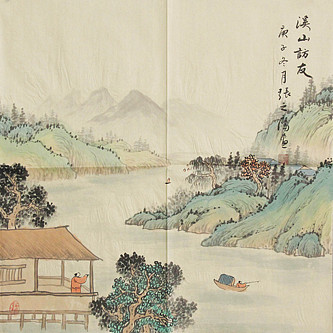 溪山訪友
庚子冬月張之